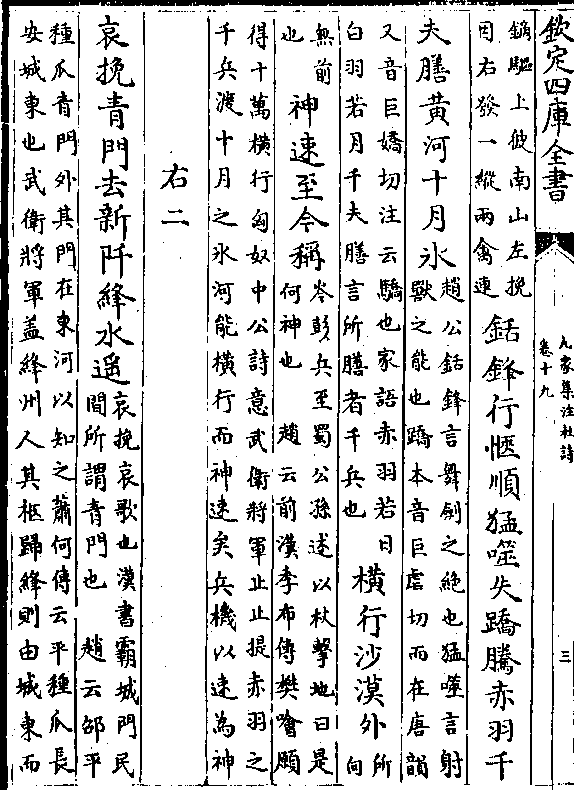 欽定四庫全書
九家集注杜詩
卷十九
三
鏑驅上彼南山左挽
因右發一縱兩禽連
銛鋒行愜順猛噬失蹻騰赤羽千
夫膳黄河十月氷
趙公銛鋒言舞劍之絶也猛噬言射
獸之能也蹻本音巨虐切而在唐韻
又音巨嬌切注云驕也家語赤羽若日
白羽若月千夫膳言所膳者千兵也
横行沙漠外
所
向
無前
也
神速至今稱
岑彭兵至蜀公孫述以杖擊地曰是
何神也　趙云前漢季布傳樊噲願
得十萬横行匈奴中公詩意武衛將軍止止提赤羽之
千兵渡十月之氷河能横行而神速矣兵機以速為神
右二
哀挽青門去新阡絳水遥
哀挽哀歌也漢書霸城門民
間所謂青門也　趙云邵平
種瓜青門外其門在東河以知之蕭何傳云平種瓜長
安城東也武衛將軍盖絳州人其柩歸絳則由城東而